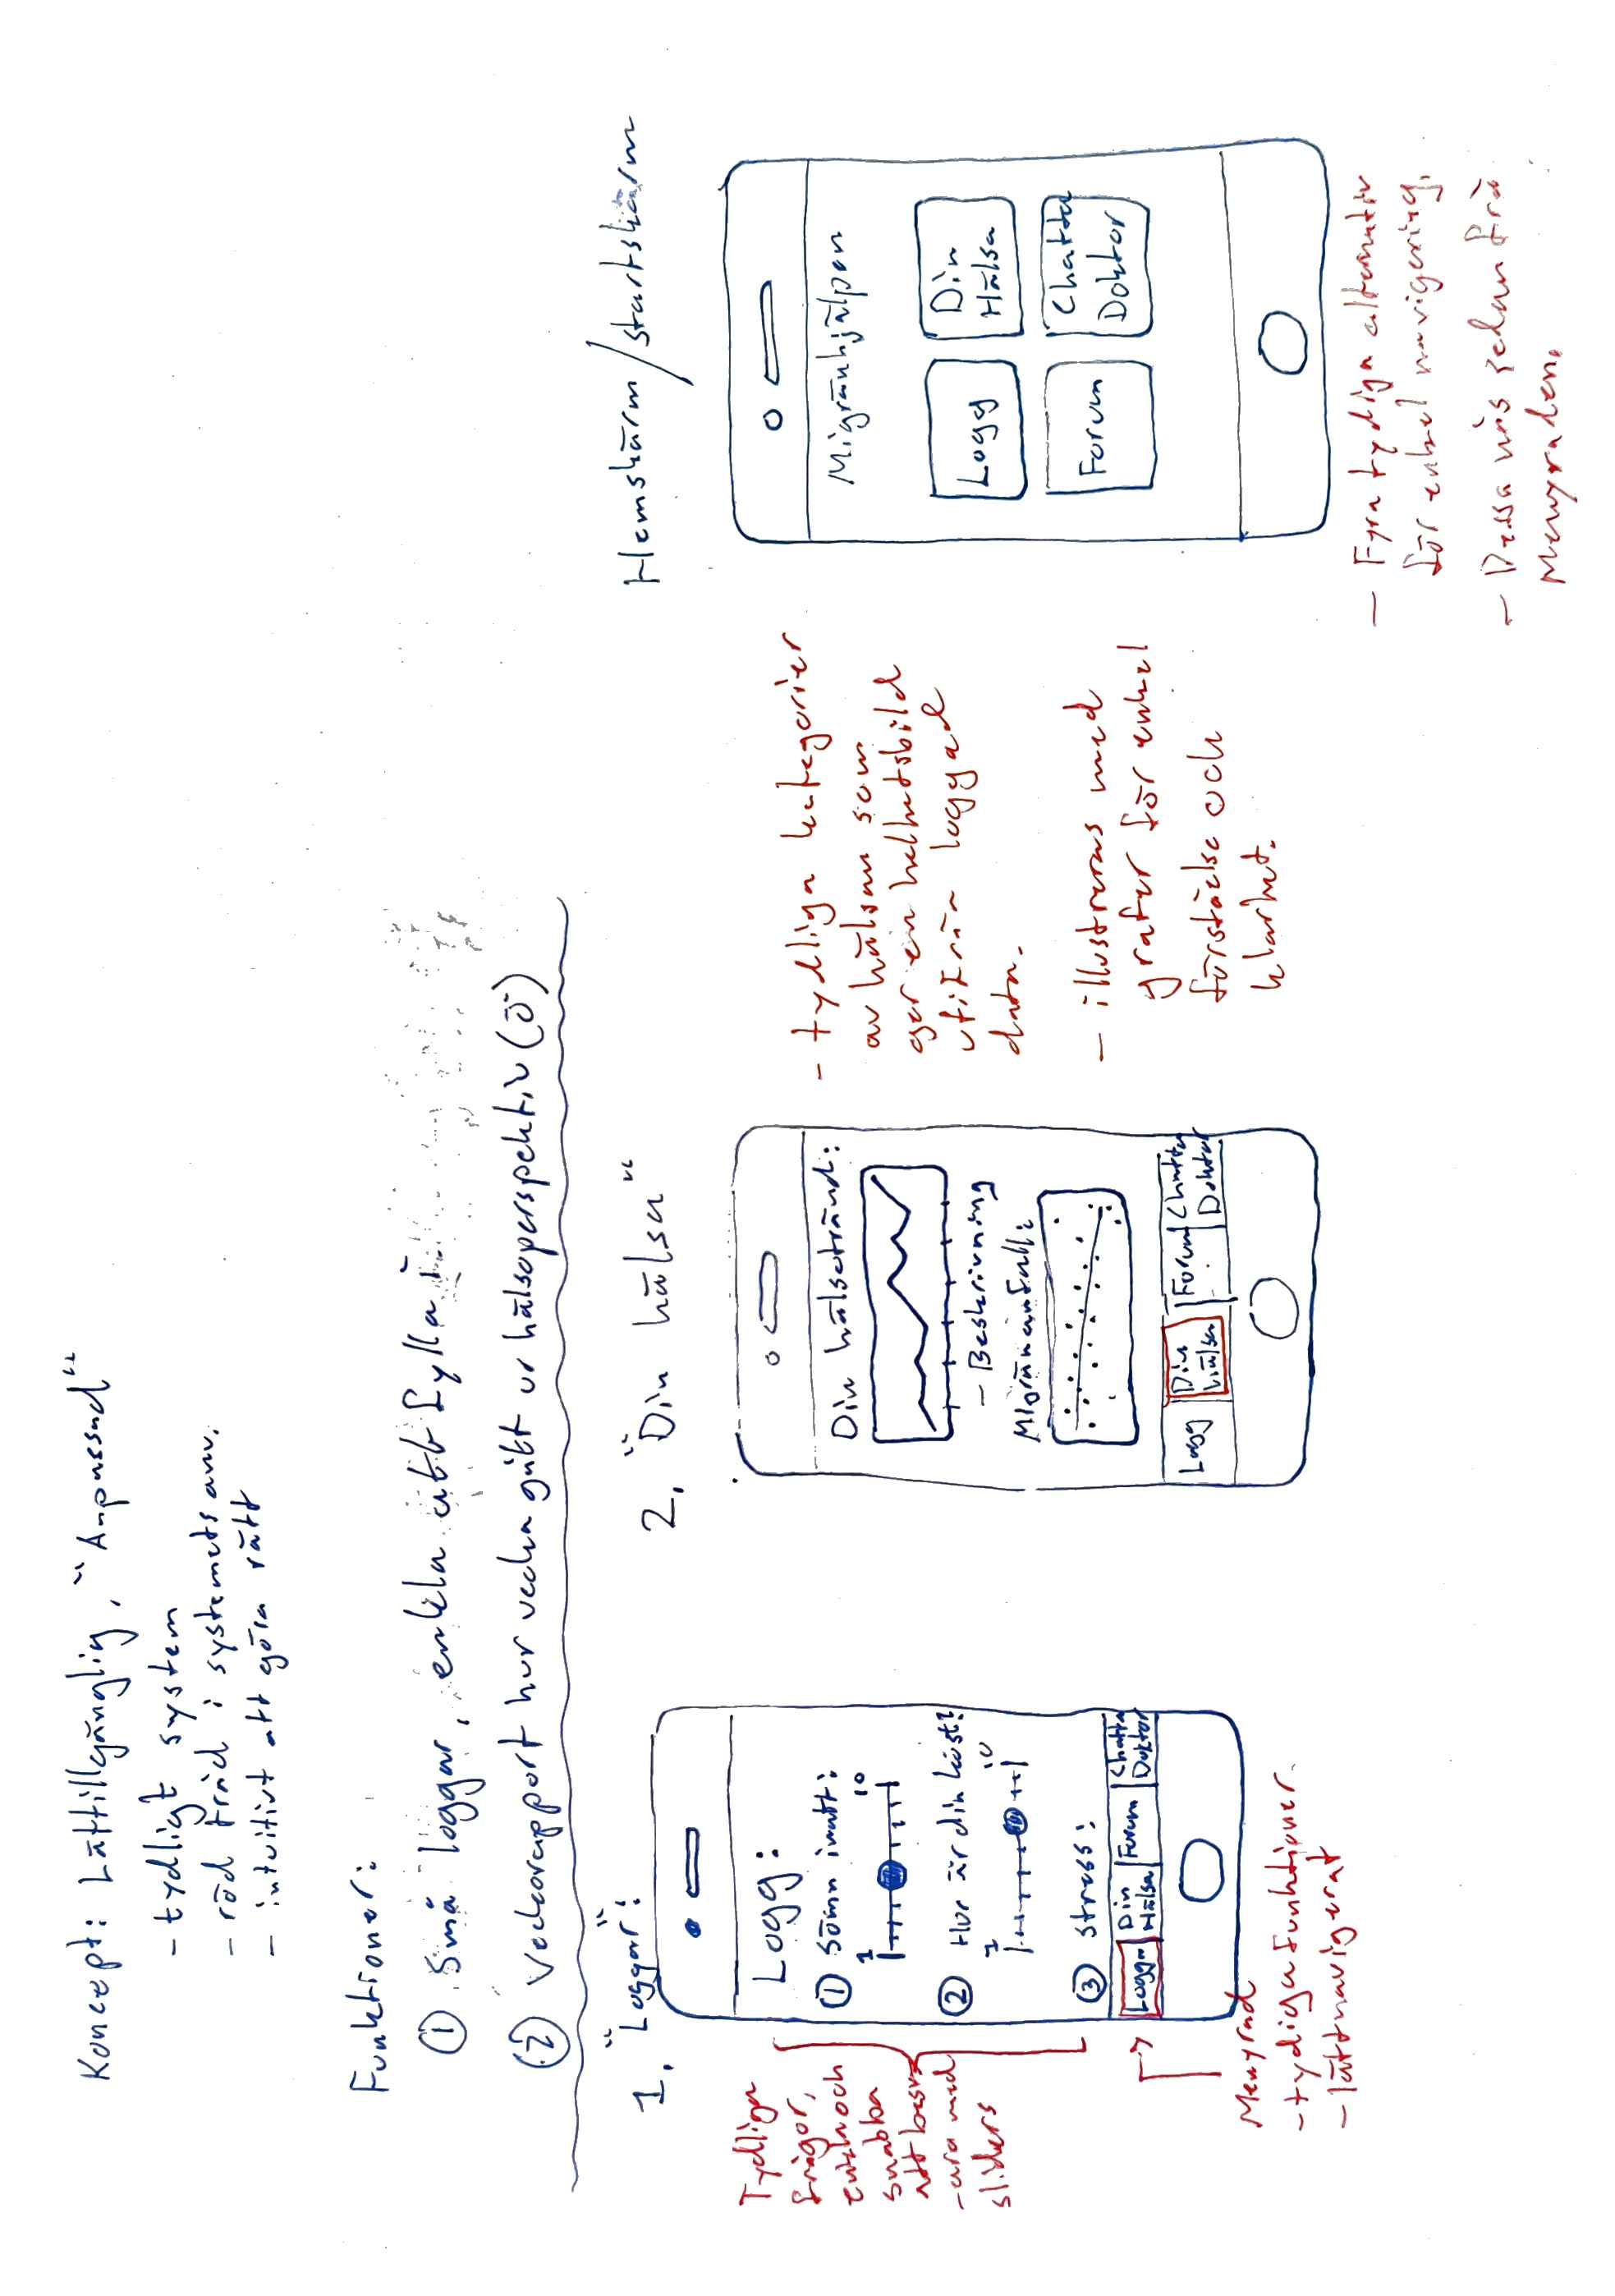 Koncept: Lättillgänglig, "Anpassad"
- tydligt system
- röd tråd i systemets anv.
- intuitivt att göra rätt
Funktioner:
① Små loggar, enkla att fylla i.
② Veckorapport hur vecka gått ur hälsoperspektiv (ö)
1. "Loggar":
Tydliga
frågor,
enkla och
snabba
att besv
-ara med
sliders
Logg:
① Sömn inatt:
1 10
② Hur är din kost?
1 10
③ Stress:
Logga
Din
Hälsa
Forum
Chatta
Doktor
Menyrad
- tydiga funktioner.
- lättnavigerat
2. "Din hälsa"
Din hälsotränd:
- Beskrivning
Migränanfall:
Logg
Din
hälsa
Forum
Chatta
Doktor
- tydliga kategorier
av hälsan som
ger en helhetsbild
utifrån loggad
data.
- illustreras med
grafer för enkel
förståelse och
klarhet.
Hemskärm/startskärm
Migränhjälpen
Logg
Din
Hälsa
Forum
Chatta
Doktor
- Fyra tydiga alternativ
för enkel navigering.
- Dessa nås sedan frå
Menyraden.